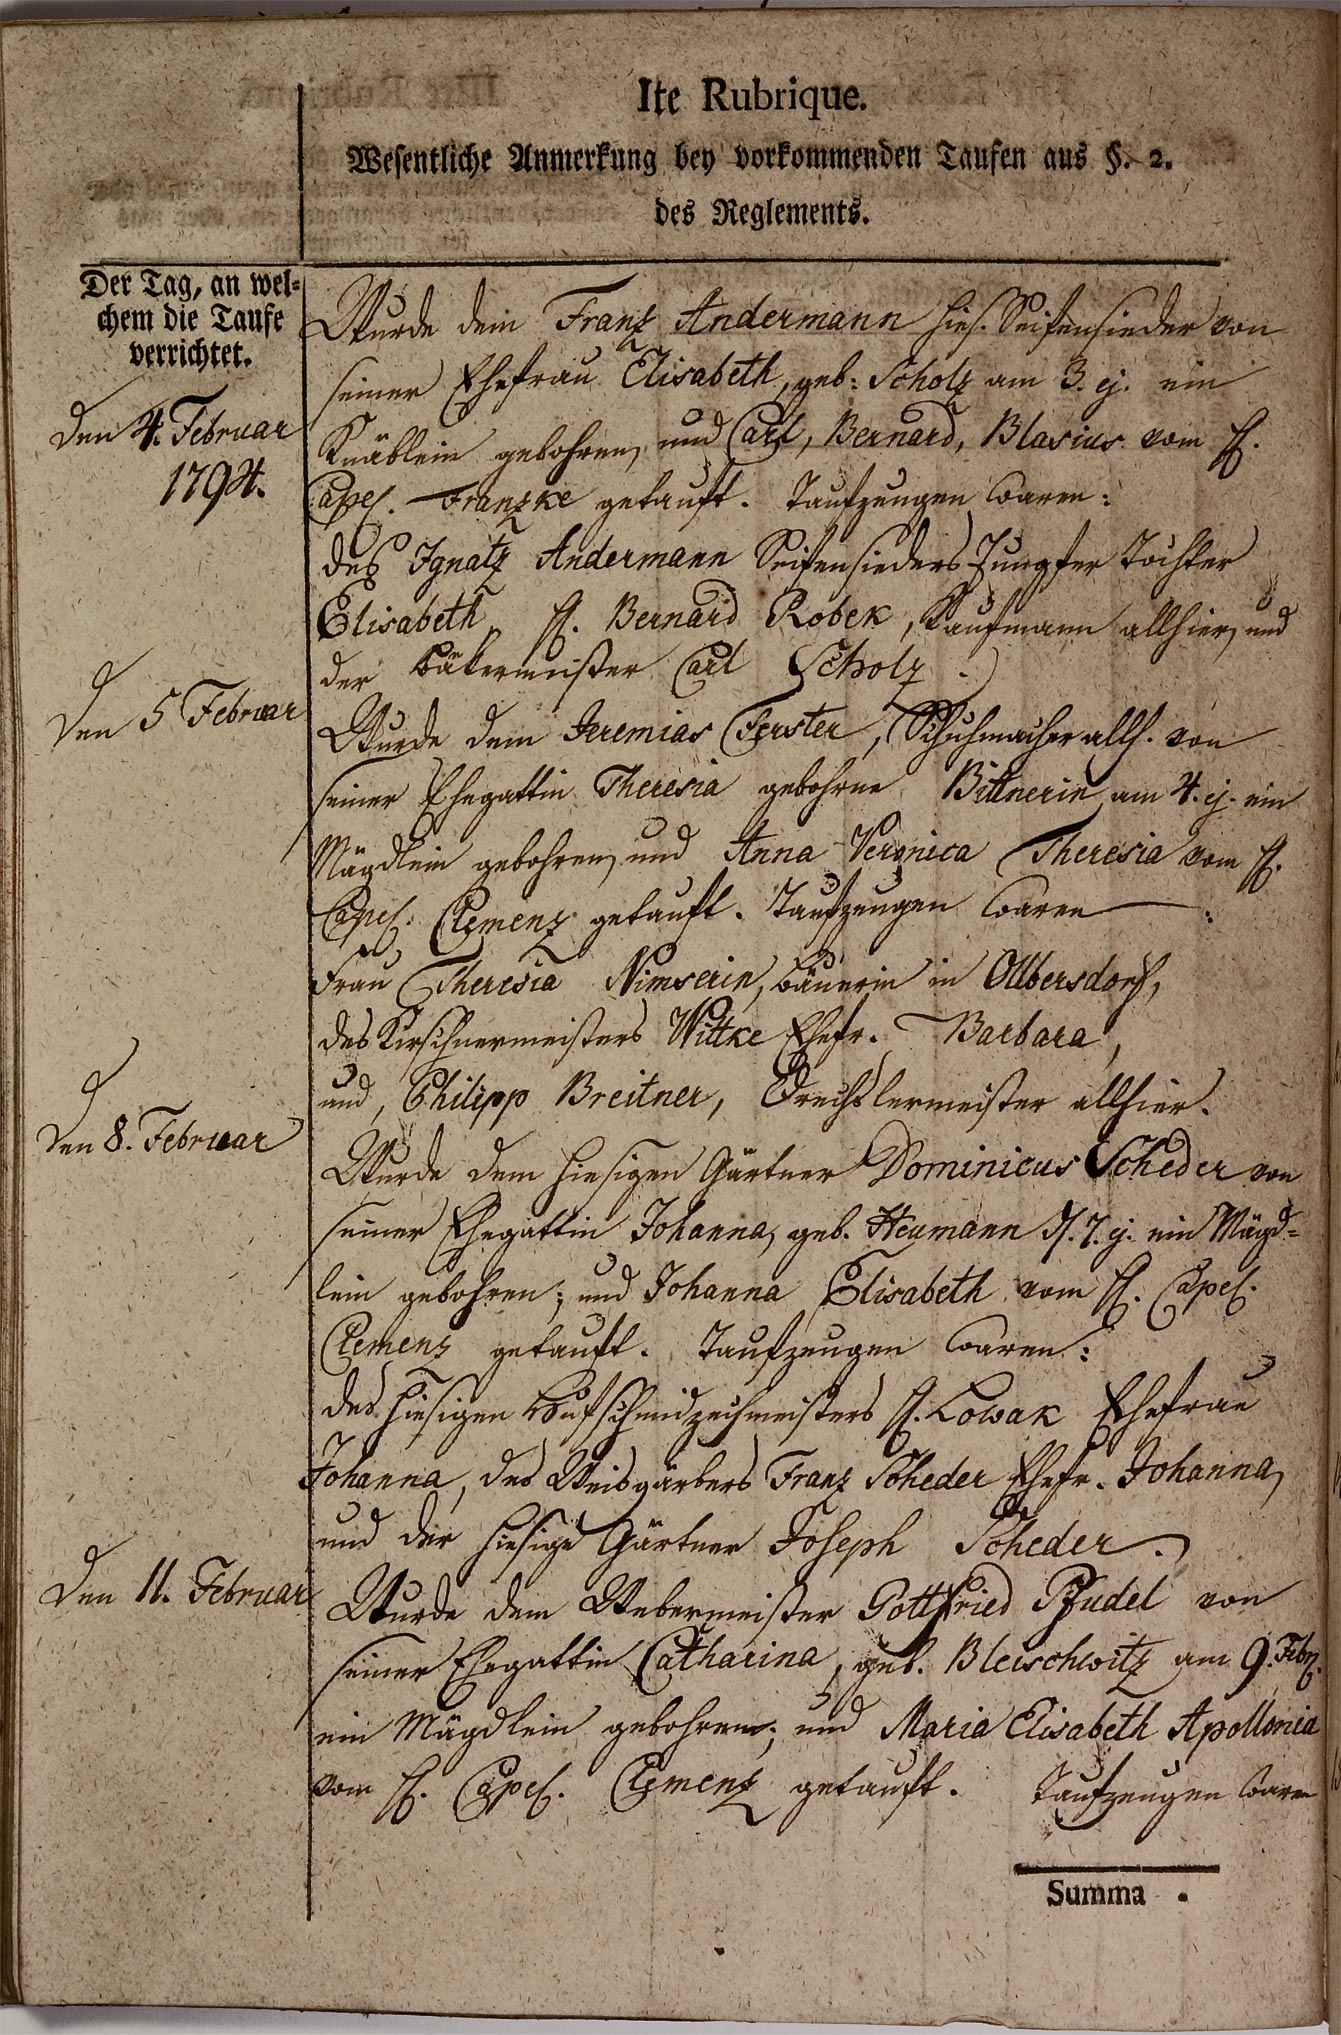 Ite Rubrique.
Wesentliche Anmerkung bey vorkommenden Taufen aus §. 2.
des Reglements.
Der Tag, an wel-
chem die Taufe
verrichtet.
Den 4. Februar
1794.
Wurde dem Franz Andermann hies. Seifensieder von
seiner Ehefrau Elisabeth, geb: Scholz am 3. ej. ein
Knäblein gebohren, und Carl, Bernard, Blasius vom H.
Capel. Franzke getauft. Taufzeugen waren:
des Ignatz Andermann Seifensieders Jungfer Tochter
Elisabeth, H. Bernard Robek, Kaufmann allhier, und
der Bäkermeister Carl Scholz.
Den 5 Februar
Wurde dem Jeremias Ferster, Schuhmacher allh. von
seiner Ehegattin Theresia gebohrne Bittnerin am 4. ej. ein
Mägdlein gebohren, und Anna Veronica Theresia vom H.
Capel. Clemenz getauft. Taufzeugen waren:
Frau Theresia Nimserin, Bäuerin in Olbersdorf,
des Kirschnermeisters Wittke Ehefr. Barbara,
und, Philipp Breitner, Drechslermeister allhier.
Den 8. Februar
Wurde dem hiesigen Gärtner Dominicus Scheder von
seiner Ehegattin Johanna, geb. Heumann 7. ej. ein Mägd-
lein gebohren; und Johanna Elisabeth vom H. Capel.
Clemenz getauft. Taufzeugen waren:
des hiesigen Hufschmidzechmeisters H. Lowak Ehefrau
Johanna, des Weisgärbers Franz Scheder Ehefr. Johanna,
und der hiesige Gärtner Joseph Scheder.
Den 11. Februar
Wurde dem Webermeister Gottfried Pfudel von
seiner Ehegattin Catharina, geb. Bleischwitz am 9. Febr.
ein Mägdlein gebohren; und Maria Elisabeth Apollonia
vom H. Capel. Clemenz getauft. Taufzeugen waren
Summa .